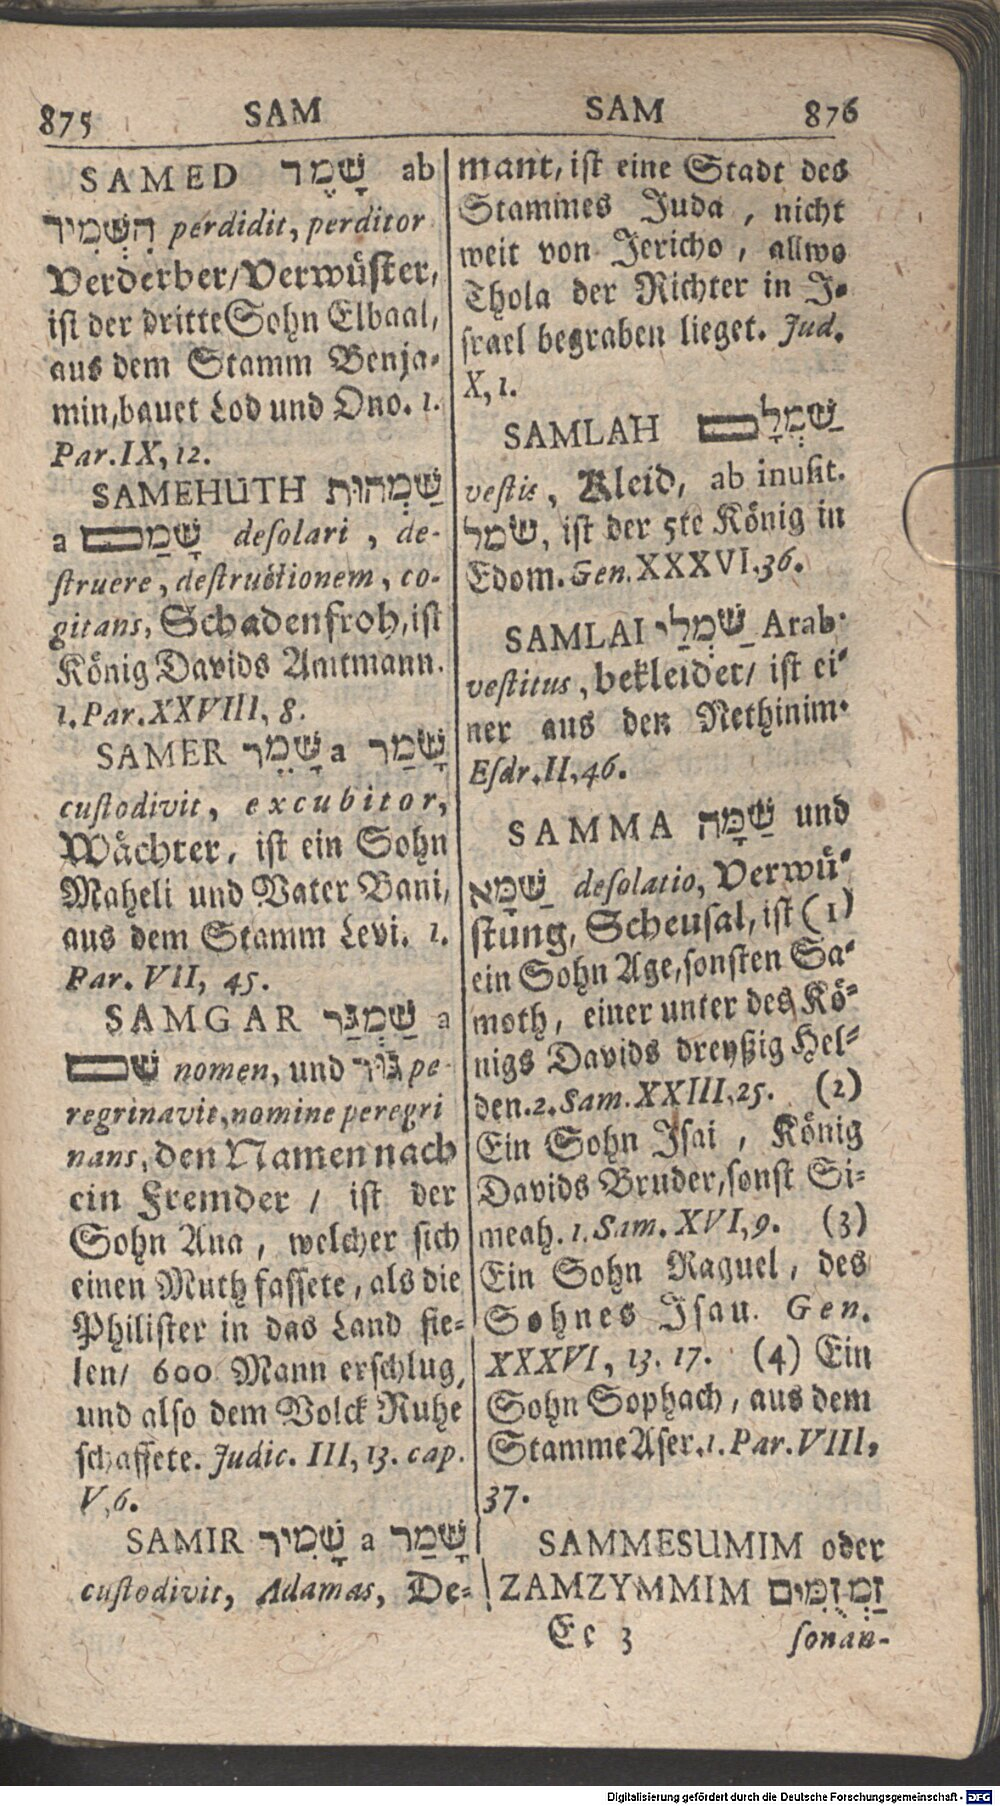 875 SAM
SAMED שָׁמֶר ab
הִשְׁמִיד perdidit, perditor
Verderber/Verwüster,
ist der dritte Sohn Elbaal,
aus dem Stamm Benja-
min, bauet Lod und Ono. 1.
Par. IX, 12.
SAMEHUTH שַׁמְהוּת
a שָׁמַם desolari, de-
struere, destructionem, co-
gitans, Schadenfroh, ist
König Davids Amtmann.
1. Par. XXVIII, 8.
SAMER שָׁמֵר a שָׁמַר
custodivit, excubitor,
Wächter, ist ein Sohn
Maheli und Vater Bani,
aus dem Stamm Levi. 1.
Par. VII, 45.
SAMGAR שַׁמְגַּר a
שֵׁם nomen, und גּוּר pe-
regrinavit, nomine peregri
nans, den Namen nach
ein Fremder / ist der
Sohn Ana, welcher sich
einen Muth fassete, als die
Philister in das Land fie-
len/ 600 Mann erschlug,
und also dem Volck Ruhe
schaffete. Judic. III, 13. cap.
V, 6.
SAMIR שָׁמִיר a שָׁמַר
custodivit, Adamas, De-
SAM 876
mant, ist eine Stadt des
Stammes Juda, nicht
weit von Jericho, allwo
Thola der Richter in J-
srael begraben lieget. Jud.
X, 1.
SAMLAH שַׁמְלָם
vestis, Kleid, ab inusit.
שׂמל, ist der 5te König in
Edom. Gen. XXXVI. 36.
SAMLAI שַׁמְלַי Arab.
vestitus, bekleidet/ ist ei-
ner aus den Nethinim.
Esdr. II, 46.
SAMMA שַׁמָּה und
שַׁמָּא desolatio, Verwü-
stung, Scheusal, ist (1)
ein Sohn Age, sonsten Sa-
moth, einer unter des Kö-
nigs Davids dreyßig Hel-
den. 2. Sam. XXIII, 25. (2)
Ein Sohn Isai, König
Davids Bruder, sonst Si-
meah. 1. Sam. XVI, 9. (3)
Ein Sohn Raguel, des
Sohnes Isau. Gen.
XXXVI, 13. 17. (4) Ein
Sohn Sophach, aus dem
Stamme Aser. 1. Par. VIII,
37.
SAMMESUMIM oder
ZAMZYMMIM זַמְזֻמִּים
Ee 3 sonan-
Digitalisierung gefördert durch die Deutsche Forschungsgemeinschaft - DFG